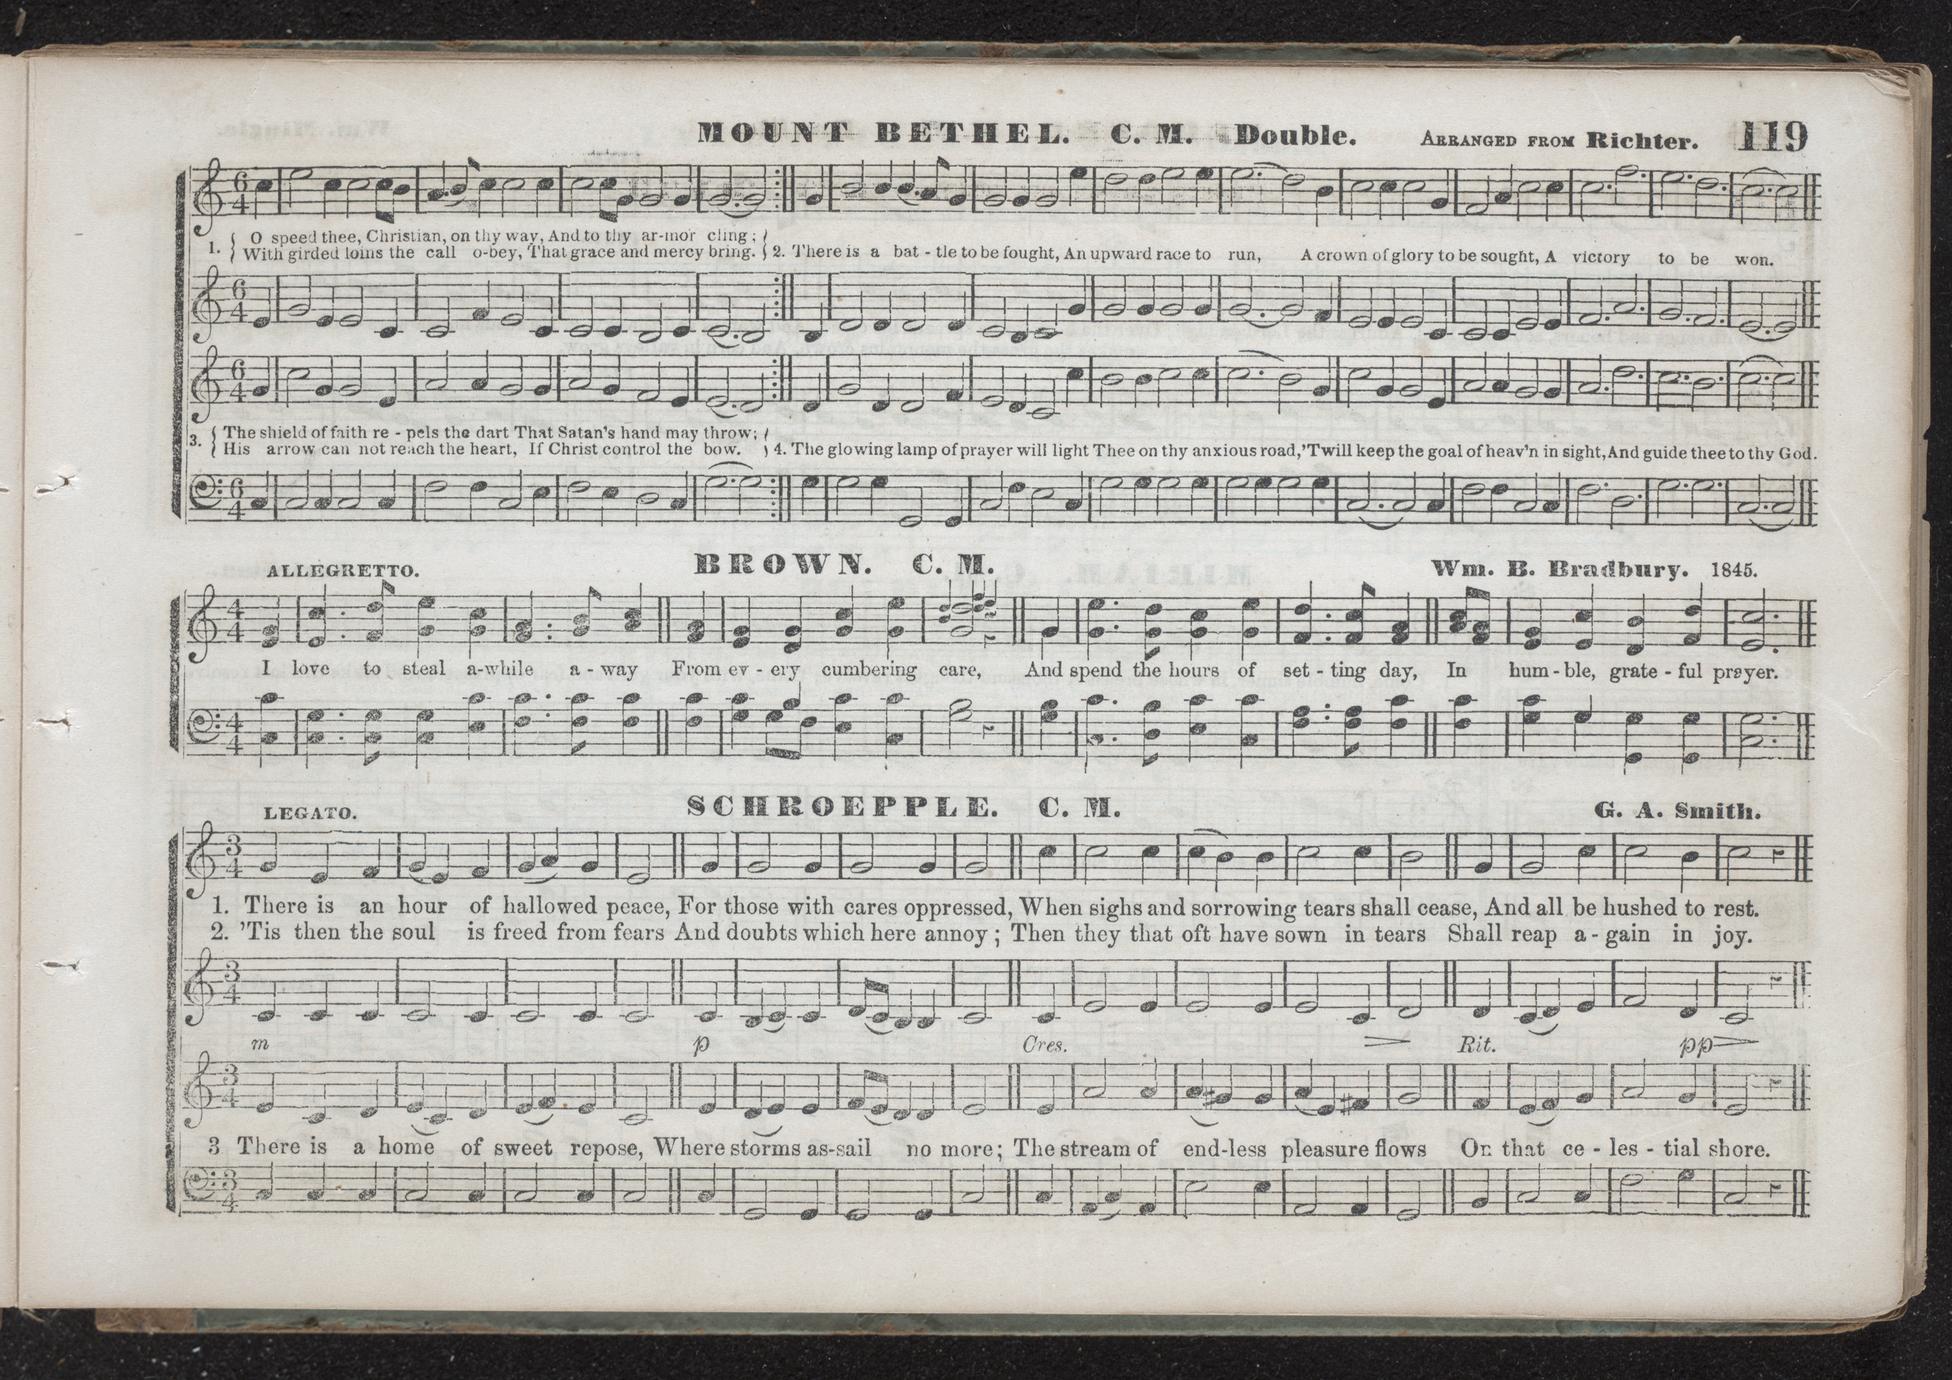 MOUNT BETHEL. C. M. Double. ARRANGED FROM Richter. 119
6 4
1. { O speed thee, Christian, on thy way, And to thy ar-mor cling; }
With girded loins the call o-bey, That grace and mercy bring. } 2. There is a bat - tle to be fought, An upward race to run, A crown of glory to be sought, A victory to be won.
6 4
6 4
3. { The shield of faith re - pels the dart That Satan's hand may throw; }
His arrow can not reach the heart, If Christ control the bow. } 4. The glowing lamp of prayer will light Thee on thy anxious road, 'Twill keep the goal of heav'n in sight, And guide thee to thy God.
6 4
ALLEGRETTO. BROWN. C. M. Wm. B. Bradbury. 1845.
4 4
I love to steal a-while a - way From ev - ery cumbering care, And spend the hours of set - ting day, In hum - ble, grate - ful prayer.
4 4
LEGATO. SCHROEPPLE. C. M. G. A. Smith.
3 4
1. There is an hour of hallowed peace, For those with cares oppressed, When sighs and sorrowing tears shall cease, And all be hushed to rest.
2. 'Tis then the soul is freed from fears And doubts which here annoy; Then they that oft have sown in tears Shall reap a - gain in joy.
3 4
m p Cres. Rit. pp
3 4
3 There is a home of sweet repose, Where storms as-sail no more; The stream of end-less pleasure flows On that ce - les - tial shore.
3 4